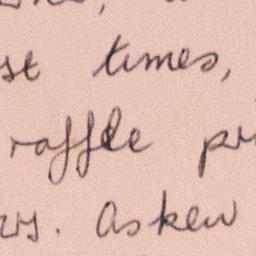 st times,
raffle pri
rs. Askew